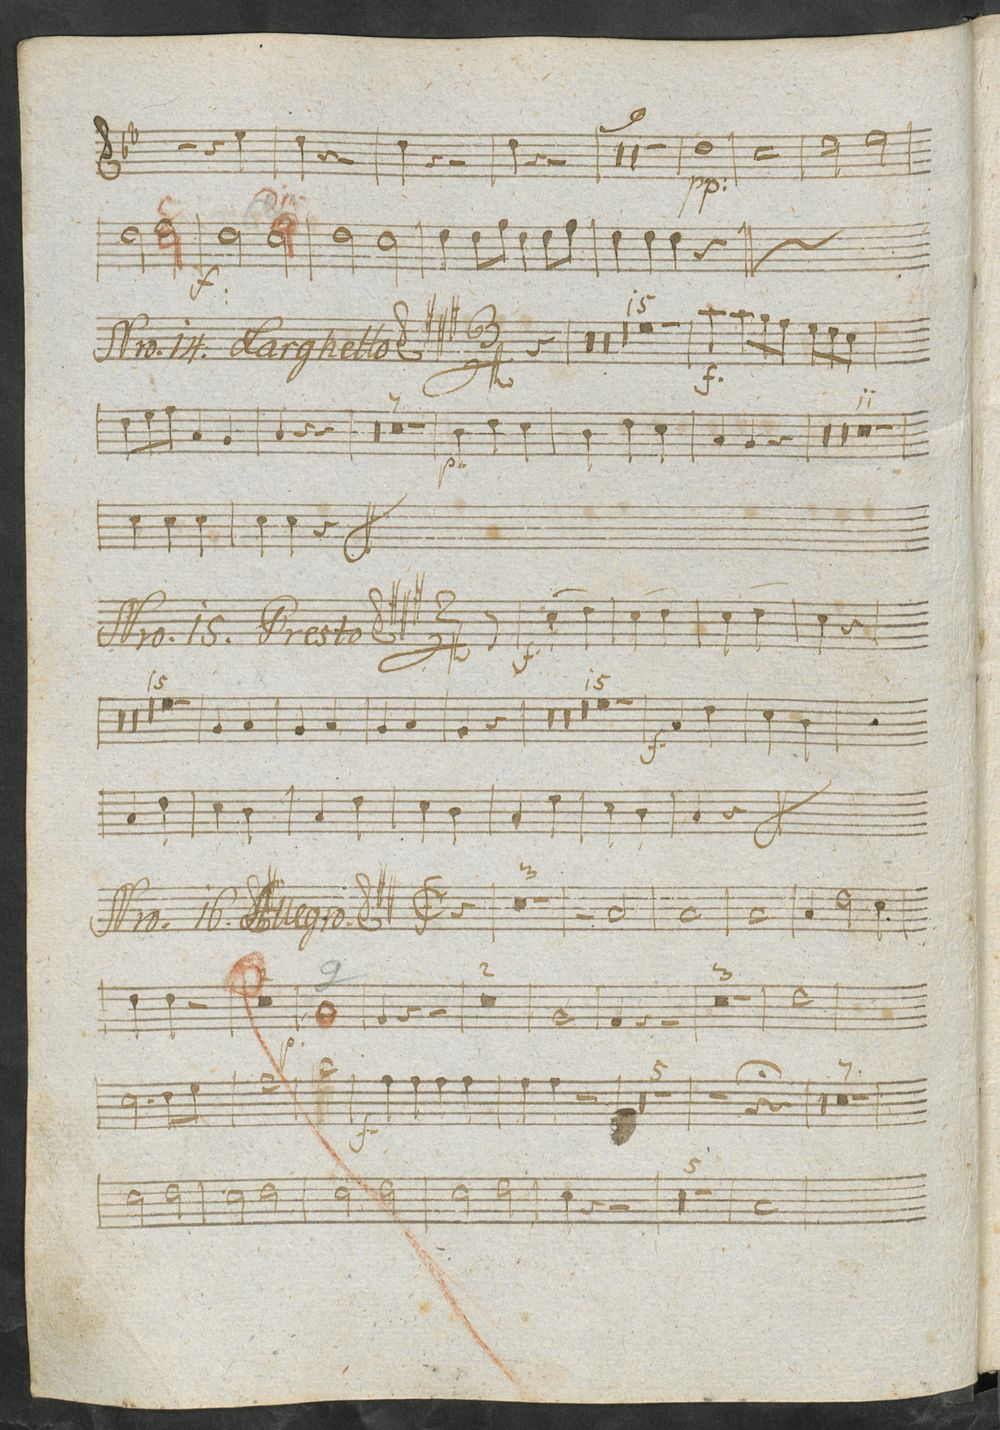 pp:
f:
Nro. 14. Larghetto 15
f.
7 11
p:
Nro. 15. Presto
f
15 15
f.
Nro. 16. Allegro. 3
9 2 3
p.
5 7.
f.
5